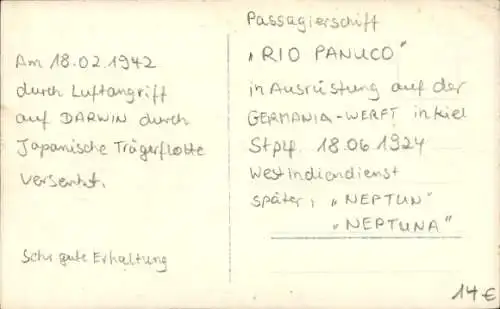 Am 18.02.1942
durch Luftangriff
auf DARWIN durch
Japanische Trägerflotte
versenkt.
Sehr gute Erhaltung
Passagierschiff
„RIO PANUCO"
in Ausrüstung auf der
GERMANIA-WERFT in Kiel
Stplf. 18.06.1924
Westindiendienst
später, „NEPTUN"
„NEPTUNA"
14 €